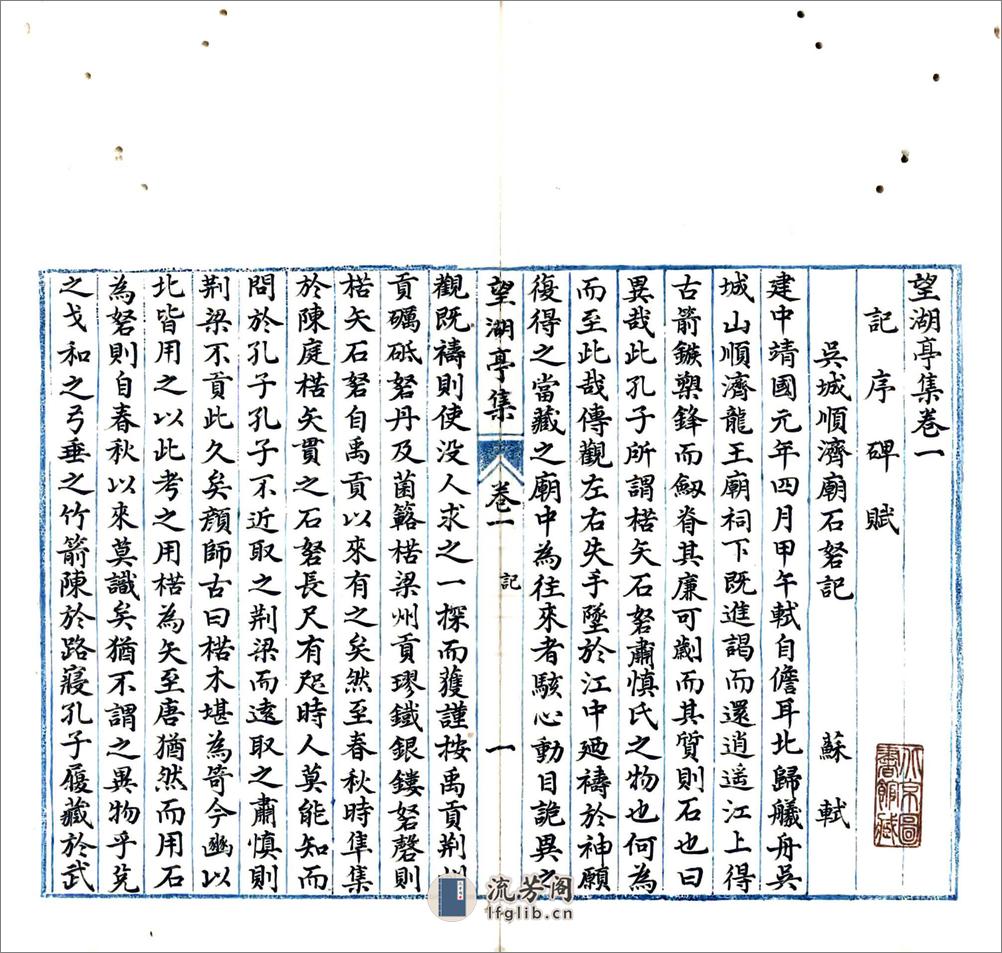 望湖亭集卷一
記序碑賦
吳城順濟廟石砮記 蘇軾
建中靖國元年四月甲午軾自儋耳北歸艤舟吳
城山順濟龍王廟祠下既進謁而還逍遙江上得
古箭鏃槊鋒而劔脊其廉可劌而其質則石也曰
異哉此孔子所謂楛矢石砮肅慎氏之物也何為
而至此哉傳觀左右失手墜於江中廼禱於神願
復得之當藏之廟中為往來者駭心動目詭異之
望湖亭集 卷一 記 一
觀既禱則使没人求之一探而獲謹按禹貢荆州
貢礪砥砮丹及菌簵楛梁州貢璆鐵銀鏤砮磬則
楛矢石砮自禹貢以來有之矣然至春秋時隼集
於陳庭楛矢貫之石砮長尺有咫時人莫能知而
問於孔子孔子不近取之荆梁而遠取之肅慎則
荆梁不貢此久矣顏師古曰楛木堪為笴今豳以
北皆用之以此考之用楛為矢至唐猶然而用石
為砮則自春秋以來莫識矣猶不謂之異物乎兊
之戈和之弓垂之竹箭陳於路寢孔子履藏於武
流芳阁
lfglib.cn